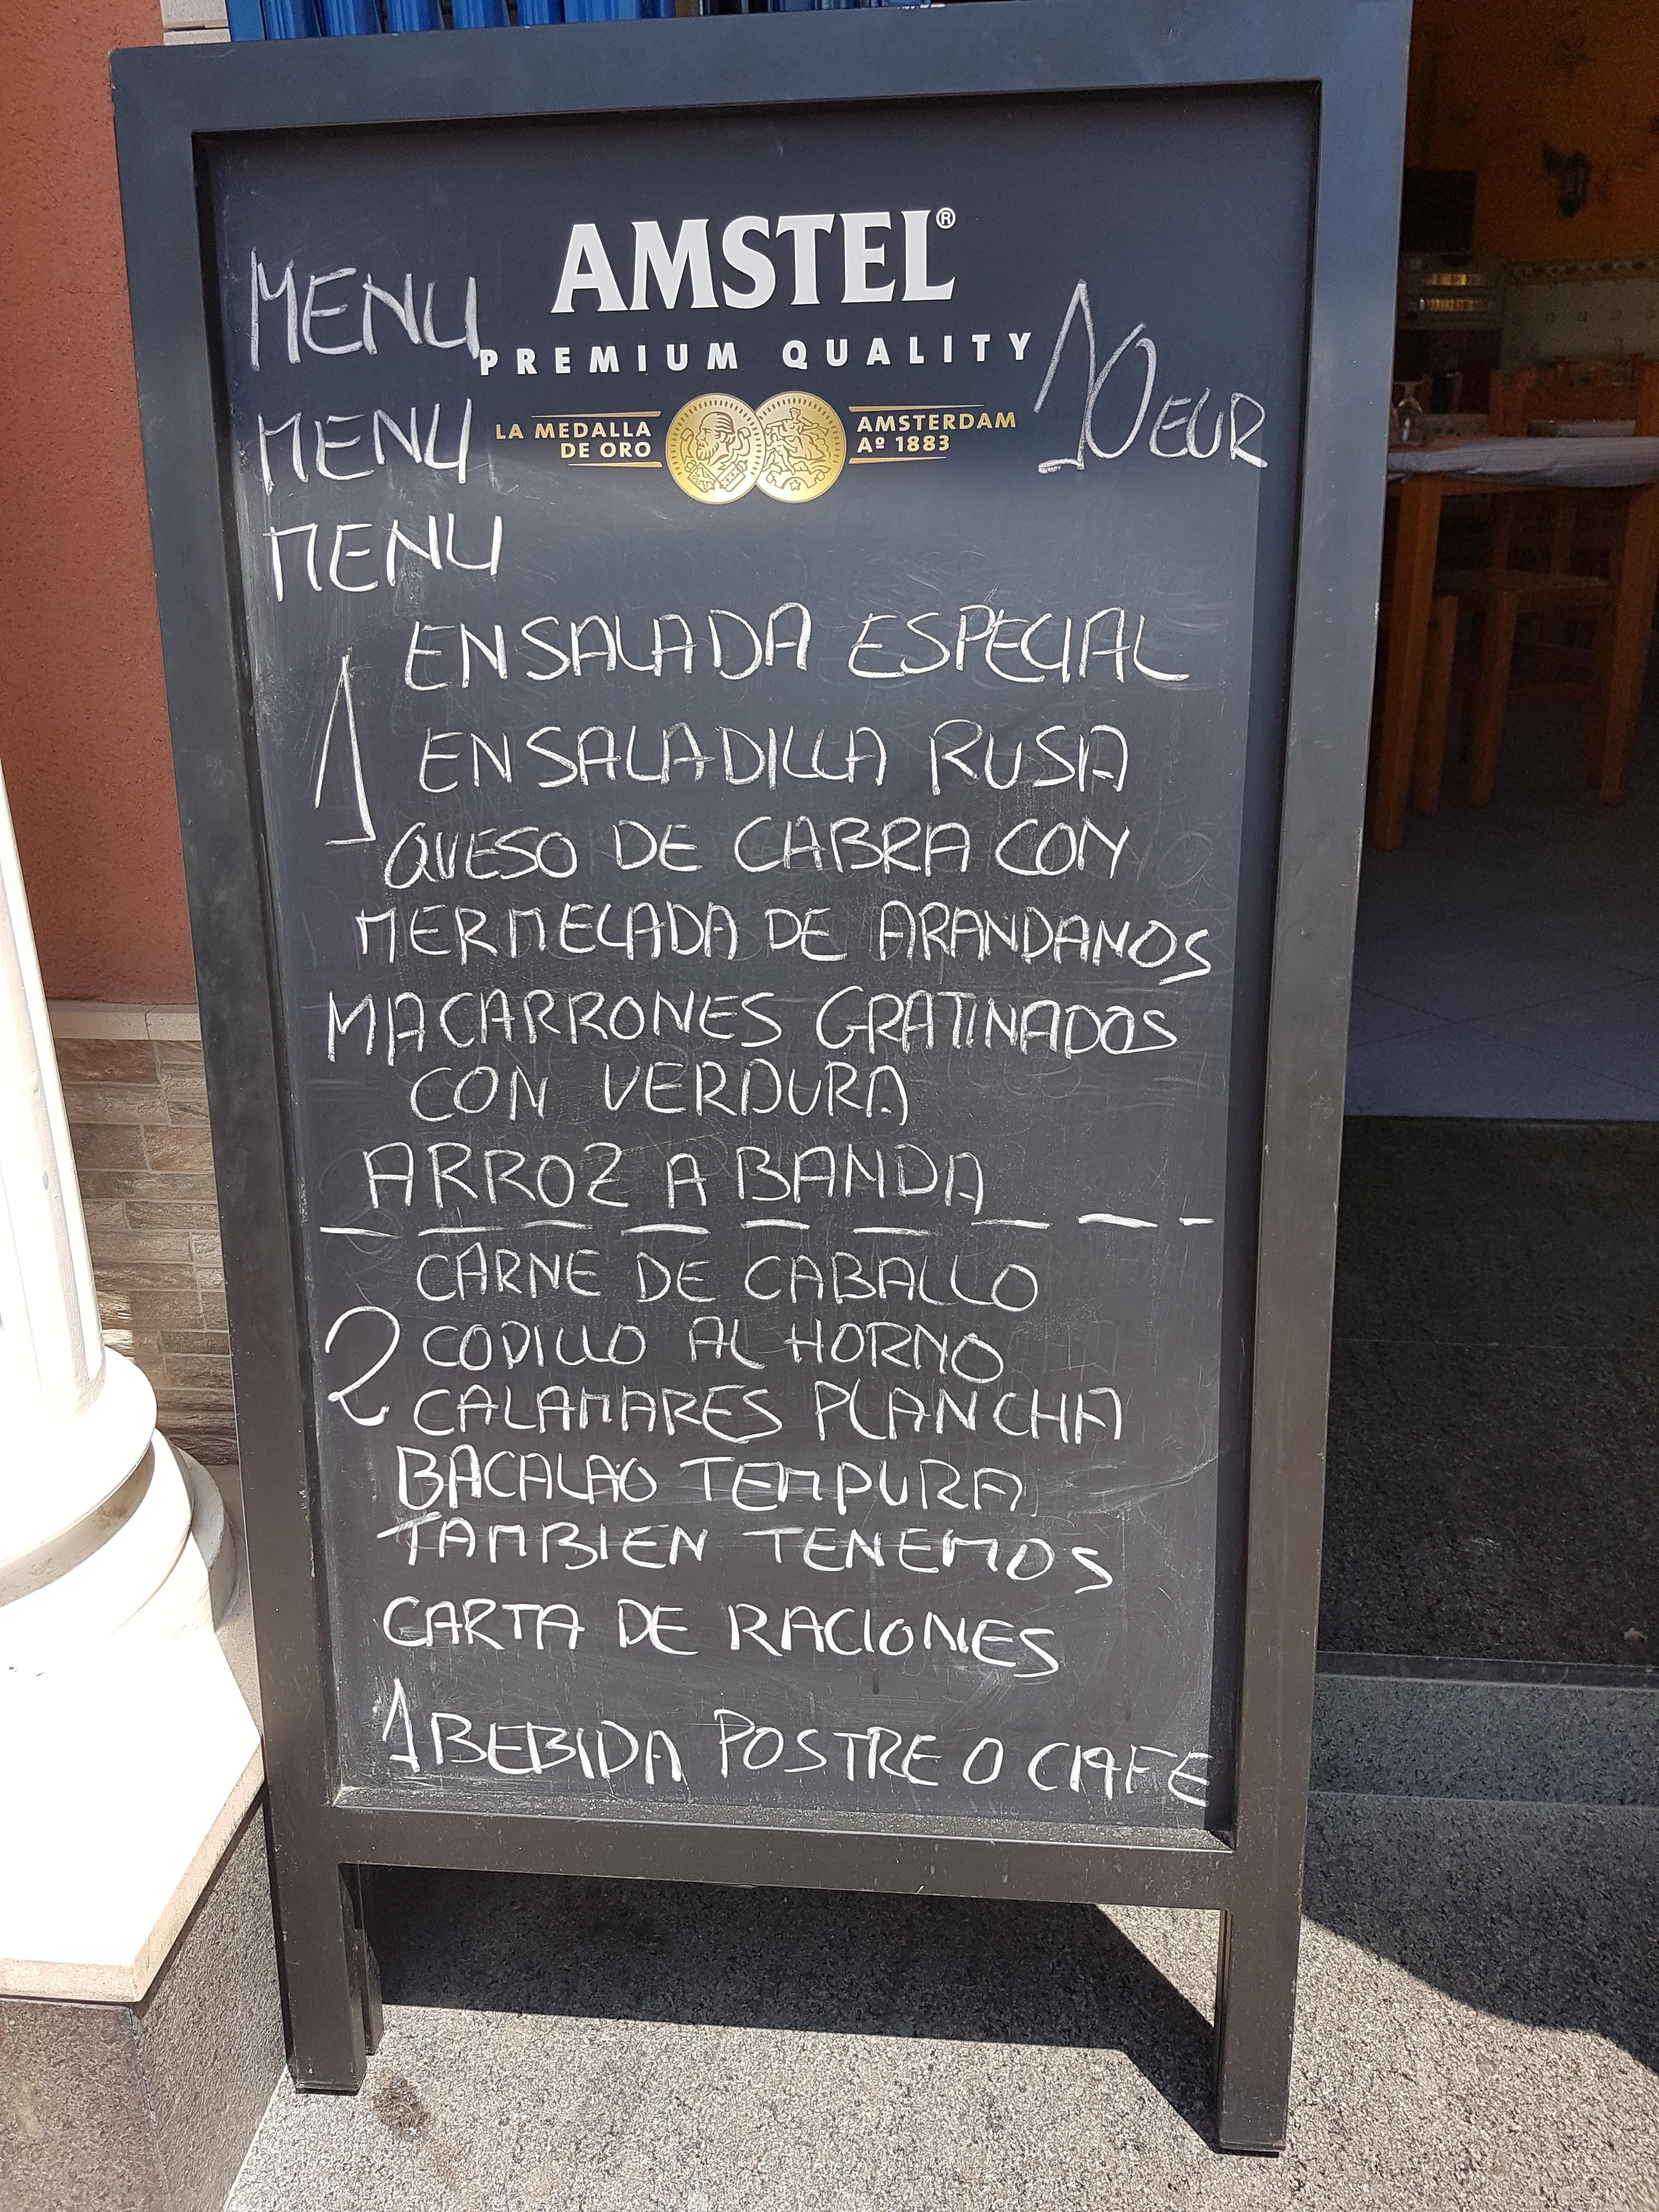 AMSTEL®
MENU
PREMIUM QUALITY
10 EUR
MENU
LA MEDALLA
DE ORO
AMSTERDAM
Aº 1883
MENU
1
ENSALADA ESPECIAL
ENSALADILLA RUSA
QUESO DE CABRA CON
MERMELADA DE ARANDANOS
MACARRONES GRATINADOS
CON VERDURA
ARROZ A BANDA
CARNE DE CABALLO
2
CODILLO AL HORNO
CALAMARES PLANCHA
BACALAO TEMPURA
TAMBIEN TENEMOS
CARTA DE RACIONES
1 BEBIDA POSTRE O CAFE